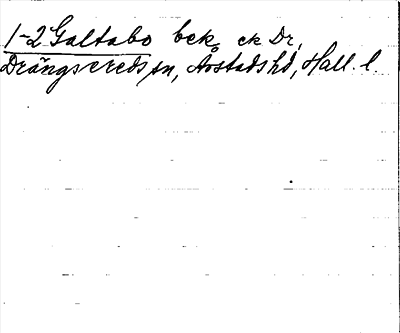 1-2 Galtabo bck ck Dr,
Drängsereds sn, Årstads hd, Hall. l.